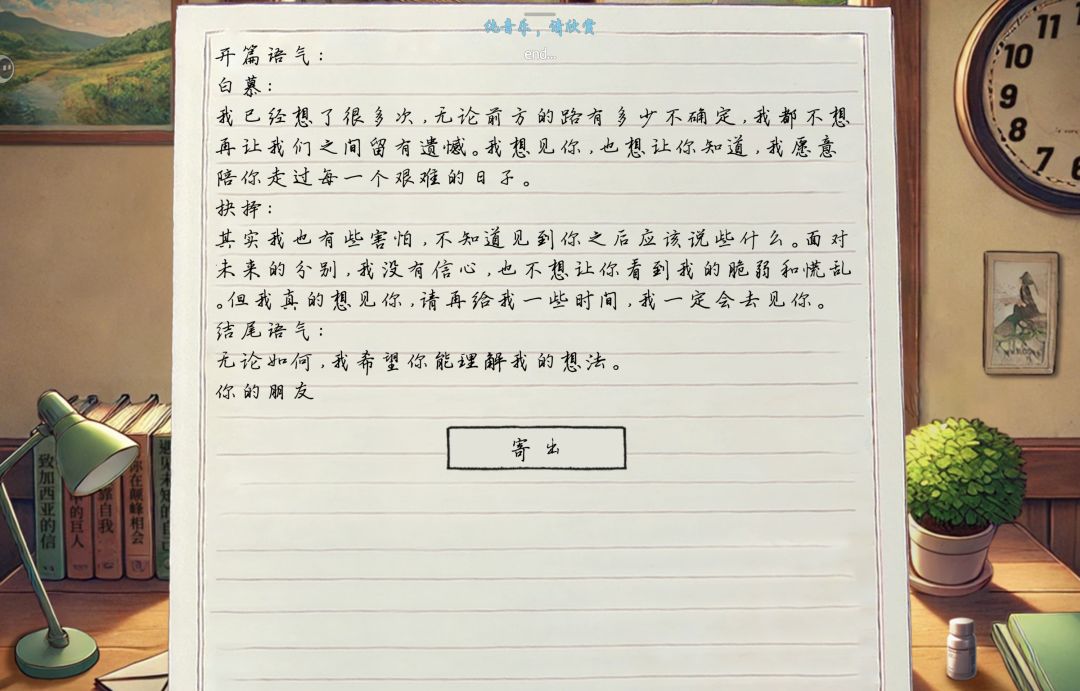 纯音乐，请欣赏
end...
开篇语气：
白慕：
我已经想了很多次，无论前方的路有多少不确定，我都不想
再让我们之间留有遗憾。我想见你，也想让你知道，我愿意
陪你走过每一个艰难的日子。
抉择：
其实我也有些害怕，不知道见到你之后应该说些什么。面对
未来的分别，我没有信心，也不想让你看到我的脆弱和慌乱
。但我真的想见你，请再给我一些时间，我一定会去见你。
结尾语气：
无论如何，我希望你能理解我的想法。
你的朋友
寄出
致加西亚的信
的巨人
靠自我
你在巅峰相会
遇见未知的自己
11
10
9
8
7
6